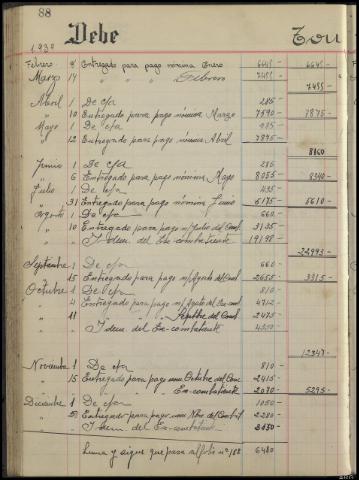 88
1939
Debe
Febrero 9 Entregado para pago nómina Enero 6645- 6645-
Marzo 14 " " " " Febrero 7455- 7455-
Abril 1 De c/a 285-
" 10 Entregado para pago nómina Marzo 7590- 7875-
Mayo 1 De c/a 285-
" 12 Entregado para pago nómina Abril 7875-
8160
Junio 1 De c/a 285-
" 6 Entregado para pago nómina Mayo 8055- 8340-
Julio 1 De c/a 435-
" 31 Entregado para pago nómina Junio 5175- 5610-
Agosto 1 De c/a 660-
" 10 Entregado para pago n/ Julio del Comb. 3135-
" " Idem del Ex-combatiente 19198-
22993-
Septiembre 1 De c/a 660-
" 15 Entregado para pago n/ Agosto del Comb 2655- 3315-
Octubre 1 De c/a 810-
" 4 Entregado para pago n/ Agosto del Ex-comb. 4712-
" 11 " " " " Septbre del Comb 2475-
" " Idem del Ex-combatiente
12347-
Noviembre 1 De c/a 810-
" 15 Entregado para pago nom Octubre del Com 2415-
" " " " " " Ex-combatiente 2070- 5295-
Diciembre 1 De c/a 1050-
" 5 Entregado para pago nom Nbre del Combat 2280-
" " Idem del Ex-combatiente
Suma y sigue que pasa al folio nº 188 6480